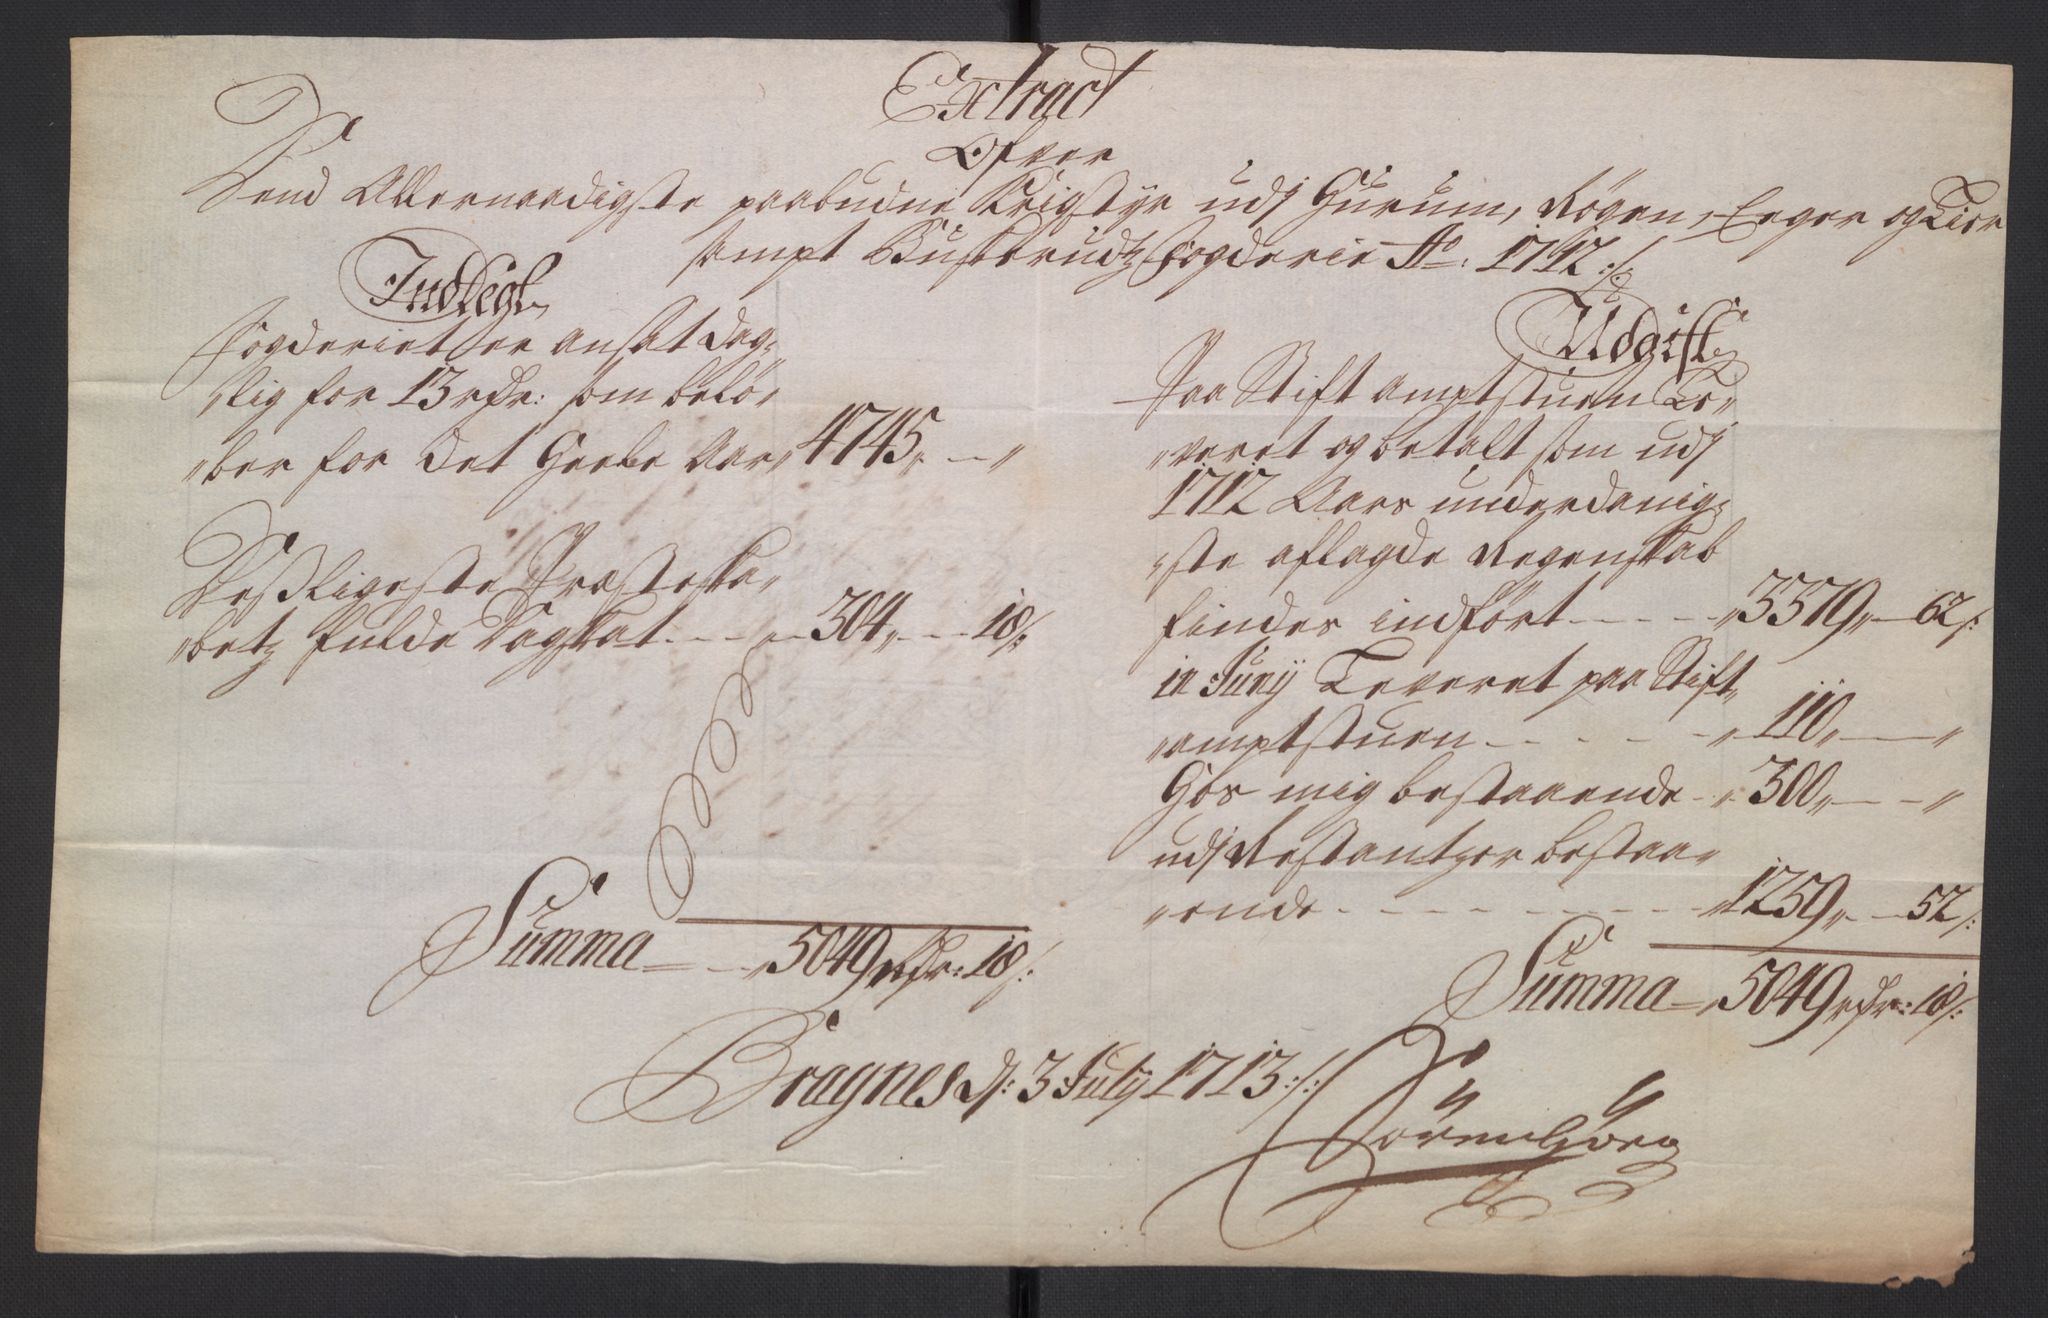 Extract
Ofver
Dend Allernaadigste paabudne Krigstyr udj Hurum, Røgen, Eeger og Lier
sampt Buskeruds fogderie Ao: 1712 :/:
Inddegt
fogderiet er ansat dag-
lig for 13 rdr: som belø-
ber for det Heele Aar 4745 „ — „
Desligeste Præsteska-
bets fulde Dagskat - - - 304 „ - - 18 /:
Summa — 5049 rdr: 18 /:
Udgift
Paa Stift amptstuen Le-
veret og betalt som udj
1712 Aars underdanig-
ste aflagde Regenskab
findes indført - - - - 3379 „ — 62 /:
in Junij Leveret paa Stift
amptstuen - - - - - „ 110 „ — „
Hos mig bestaaende - „ 300 „ — „
udj Restantzer bestaa-
ende - - - - - - - „ 1259 „ — 52 /:
Summa — 5049 rdr: 18 /:
Bragnes d: 3 July 1713 :/:
Sørren Gørg